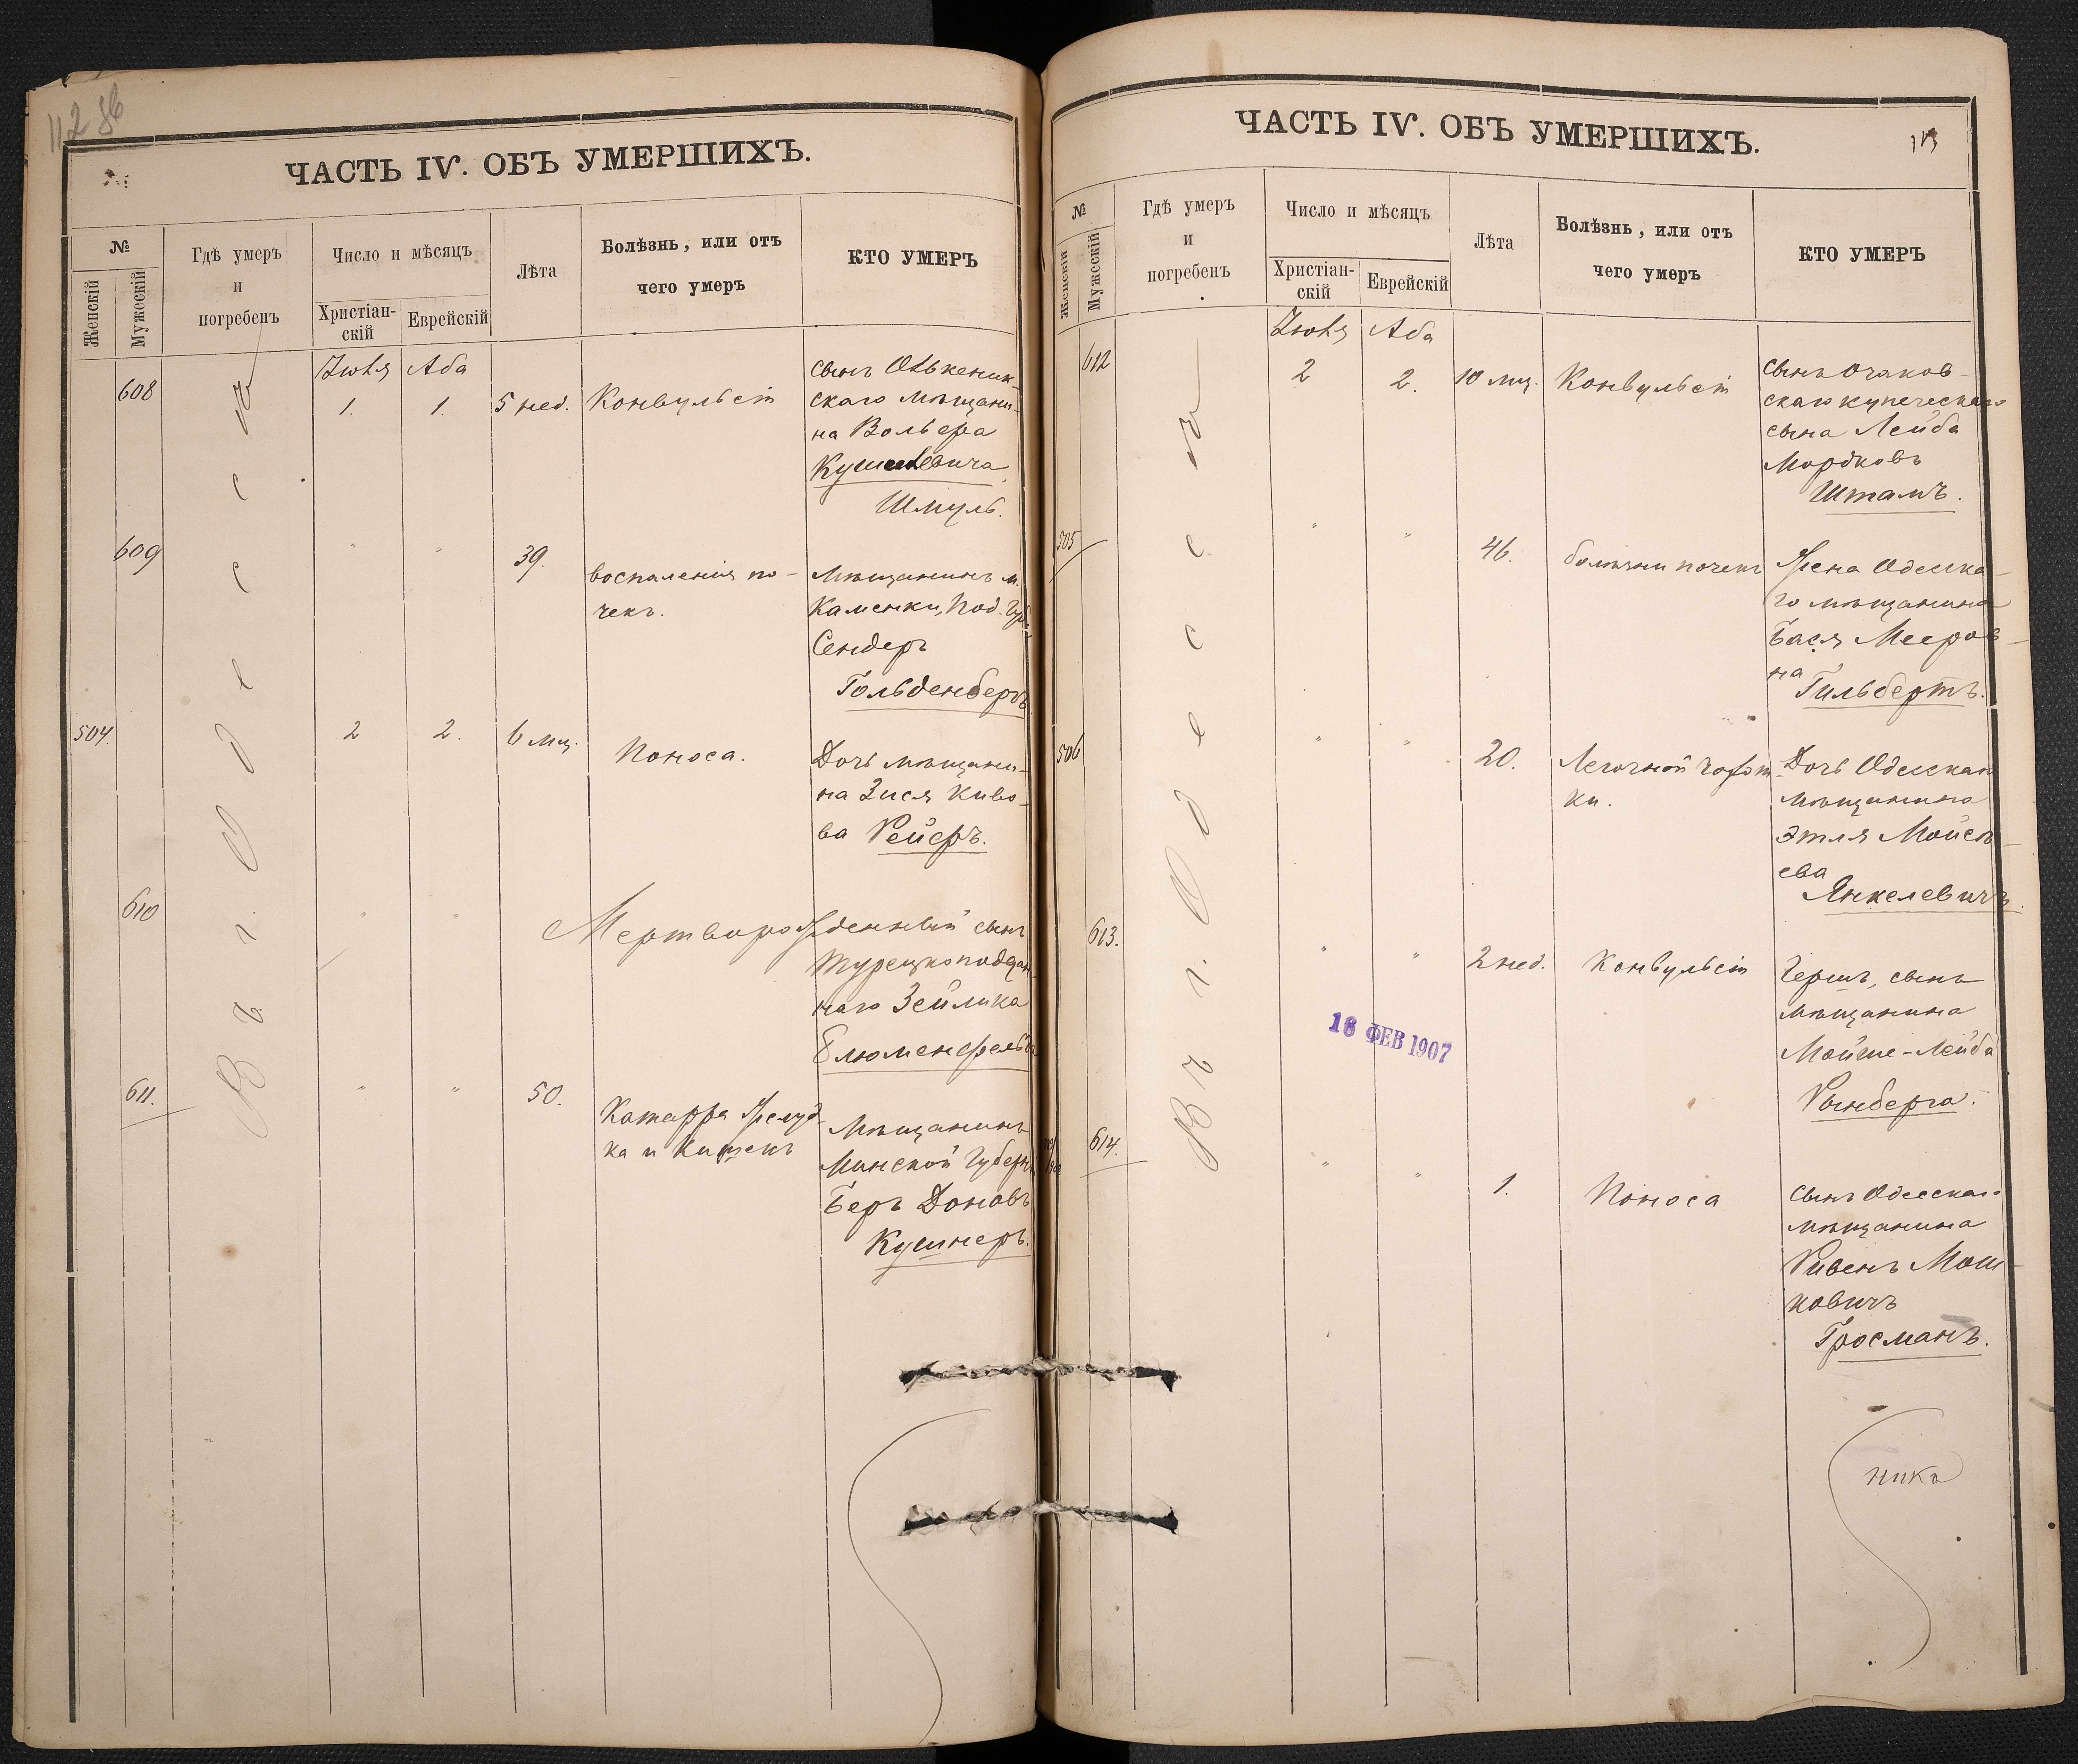 ЧАСТЬ IV. ОБЪ УМЕРШИХЪ.
№
Женскій
Мужескій
Гдѣ умеръ
и
погребенъ
Число и мѣсяцъ
Христіан-
скій
Еврейскій
Лѣта
Болѣзнь, или отъ
чего умеръ
КТО УМЕРЪ
Въ г. Одессѣ
Іюля Аба
608 1. 1. 5 нед. Конвульсіи
сынъ Олькеник-
скаго мѣщани-
на Вольфа
Кушелевича
Шмуль.
609 " " 39. воспаленія по-
чекъ.
Мѣщанинъ м.
Каменки, Под. губ.
Сендеръ
Гольденбергъ
504. 2 2. 6 мц. Поноса.
Дочь мѣщани-
на Зися Киво-
ва Рейфъ.
610 " " Мертворожденный сынъ
Турецкоподдан-
наго Зейлика
Блюменфельда
611. " " 50. Катарра желуд-
ка и кишекъ
Мѣщанинъ
Минской Губерн.
Беръ Доновъ
Кушнеръ.
ЧАСТЬ IV. ОБЪ УМЕРШИХЪ.
113
№
Женскій
Мужескій
Гдѣ умеръ
и
погребенъ
Число и мѣсяцъ
Христіан-
скій
Еврейскій
Лѣта
Болѣзнь, или отъ
чего умеръ
КТО УМЕРЪ
Въ г. Одессѣ
Іюля Аба
612 2 2. 10 мц. Конвульсіи
сынъ Очаков-
скаго купеческаго
сына Лейба
Мордковъ
Штамъ.
505 " " 46. болѣзни почекъ
Жена Одесска-
го мѣщанина
Бася Мееров-
на
Гильбертъ.
506 " " 20. Легочной чахот-
ки.
Дочь Одесскаго
мѣщанина
Этля Моисѣ-
ева
Янкелевичъ.
613. " " 2 нед. Конвульсіи
Гершъ, сынъ
мѣщанина
Мойше-Лейба
Рынберга.
18 ФЕВ 1907
614. " " 1. Поноса
сынъ Одесскаго
мѣщанина
Рувенъ Мош-
ковичъ
Гросманъ.